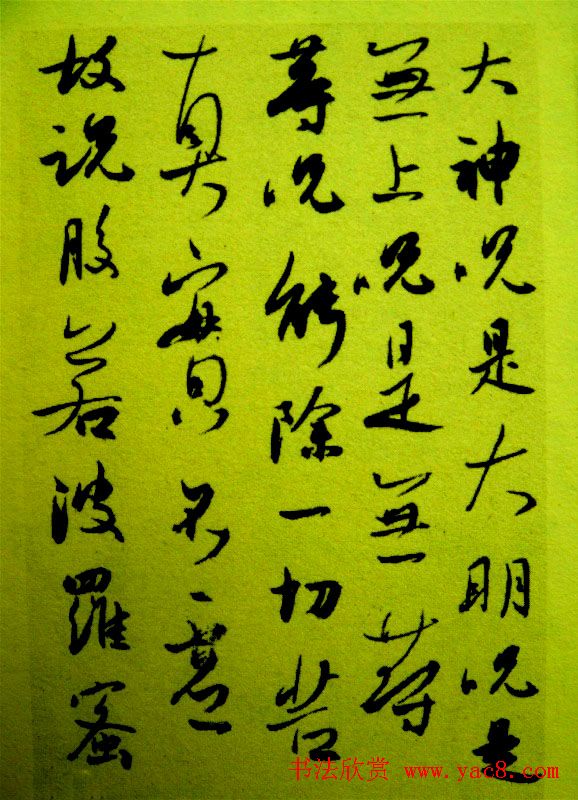 大神呪是大明呪是
無上呪是無等
等呪能除一切苦
真實不虛
故說般若波羅蜜
书法欣赏 www.yac8.com